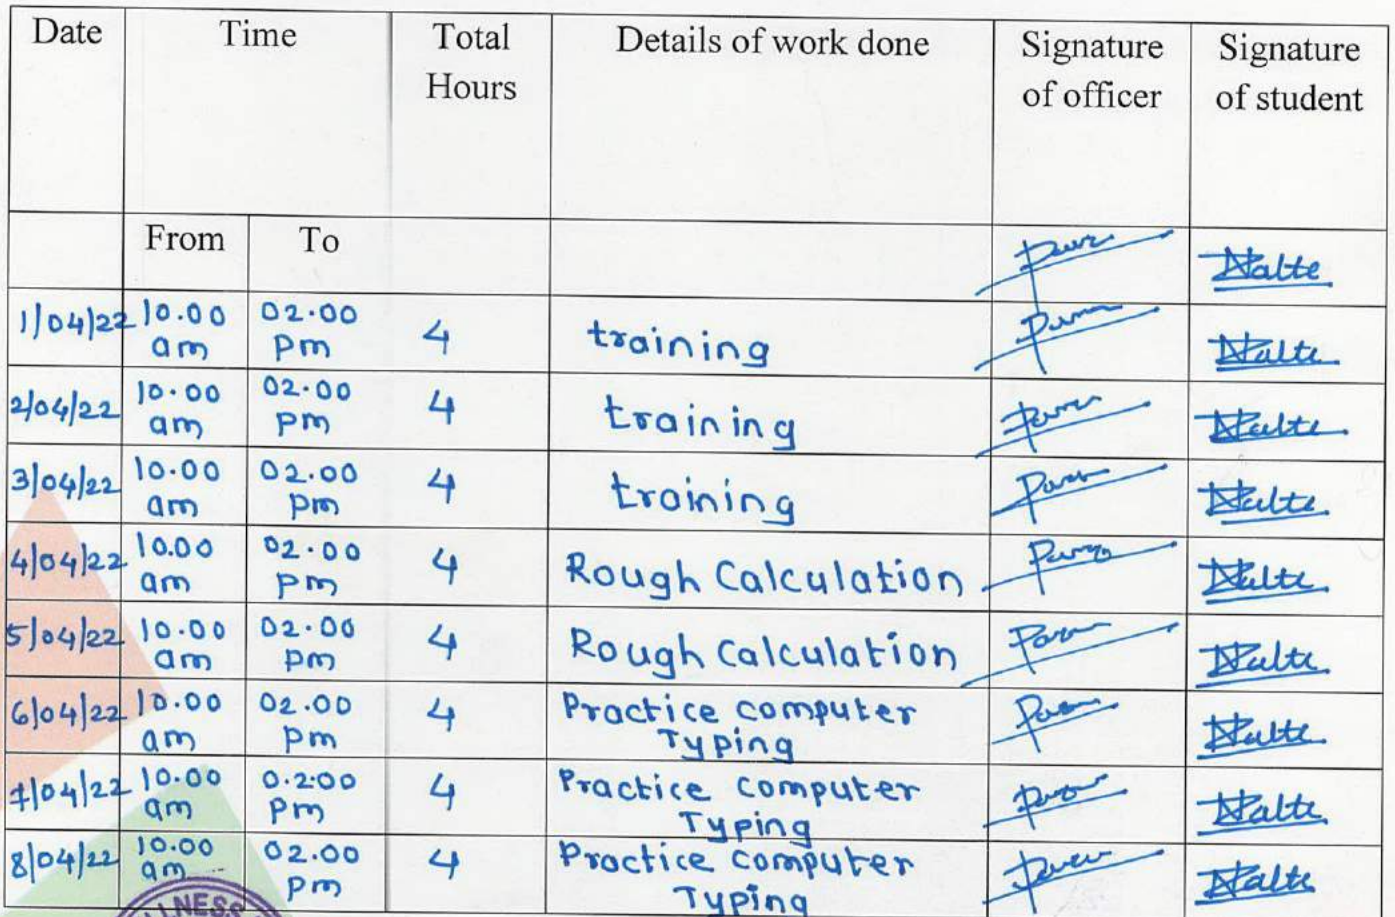 Date Time Total Hours Details of work done Signature of officer Signature of student
From To Nalte
1/04/22 10.00 am 02.00 pm 4 training Nalte
2/04/22 10.00 am 02.00 pm 4 training Nalte
3/04/22 10.00 am 02.00 pm 4 training Nalte
4/04/22 10.00 am 02.00 pm 4 Rough Calculation Nalte
5/04/22 10.00 am 02.00 pm 4 Rough Calculation Nalte
6/04/22 10.00 am 02.00 pm 4 Practice Computer Typing Nalte
7/04/22 10.00 am 0.2.00 pm 4 Practice Computer Typing Nalte
8/04/22 10.00 am 02.00 pm 4 Practice Computer Typing Nalte